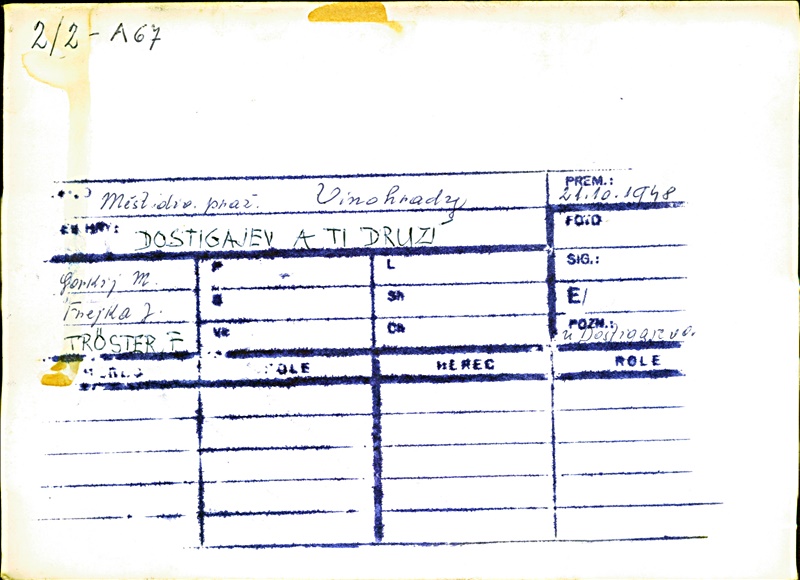 2/2 - A67
PREM.:
Měst. div. praž. Vinohrady
21.10.1948
HRY: DOSTIGAJEV A TI DRUZÍ
FOTO
Gorkij M.
P
L
SIG.:
Frejka J.
Sh
E/
TRÖSTER, F
VK
Ch
POZN.:
HEREC ROLE HEREC ROLE